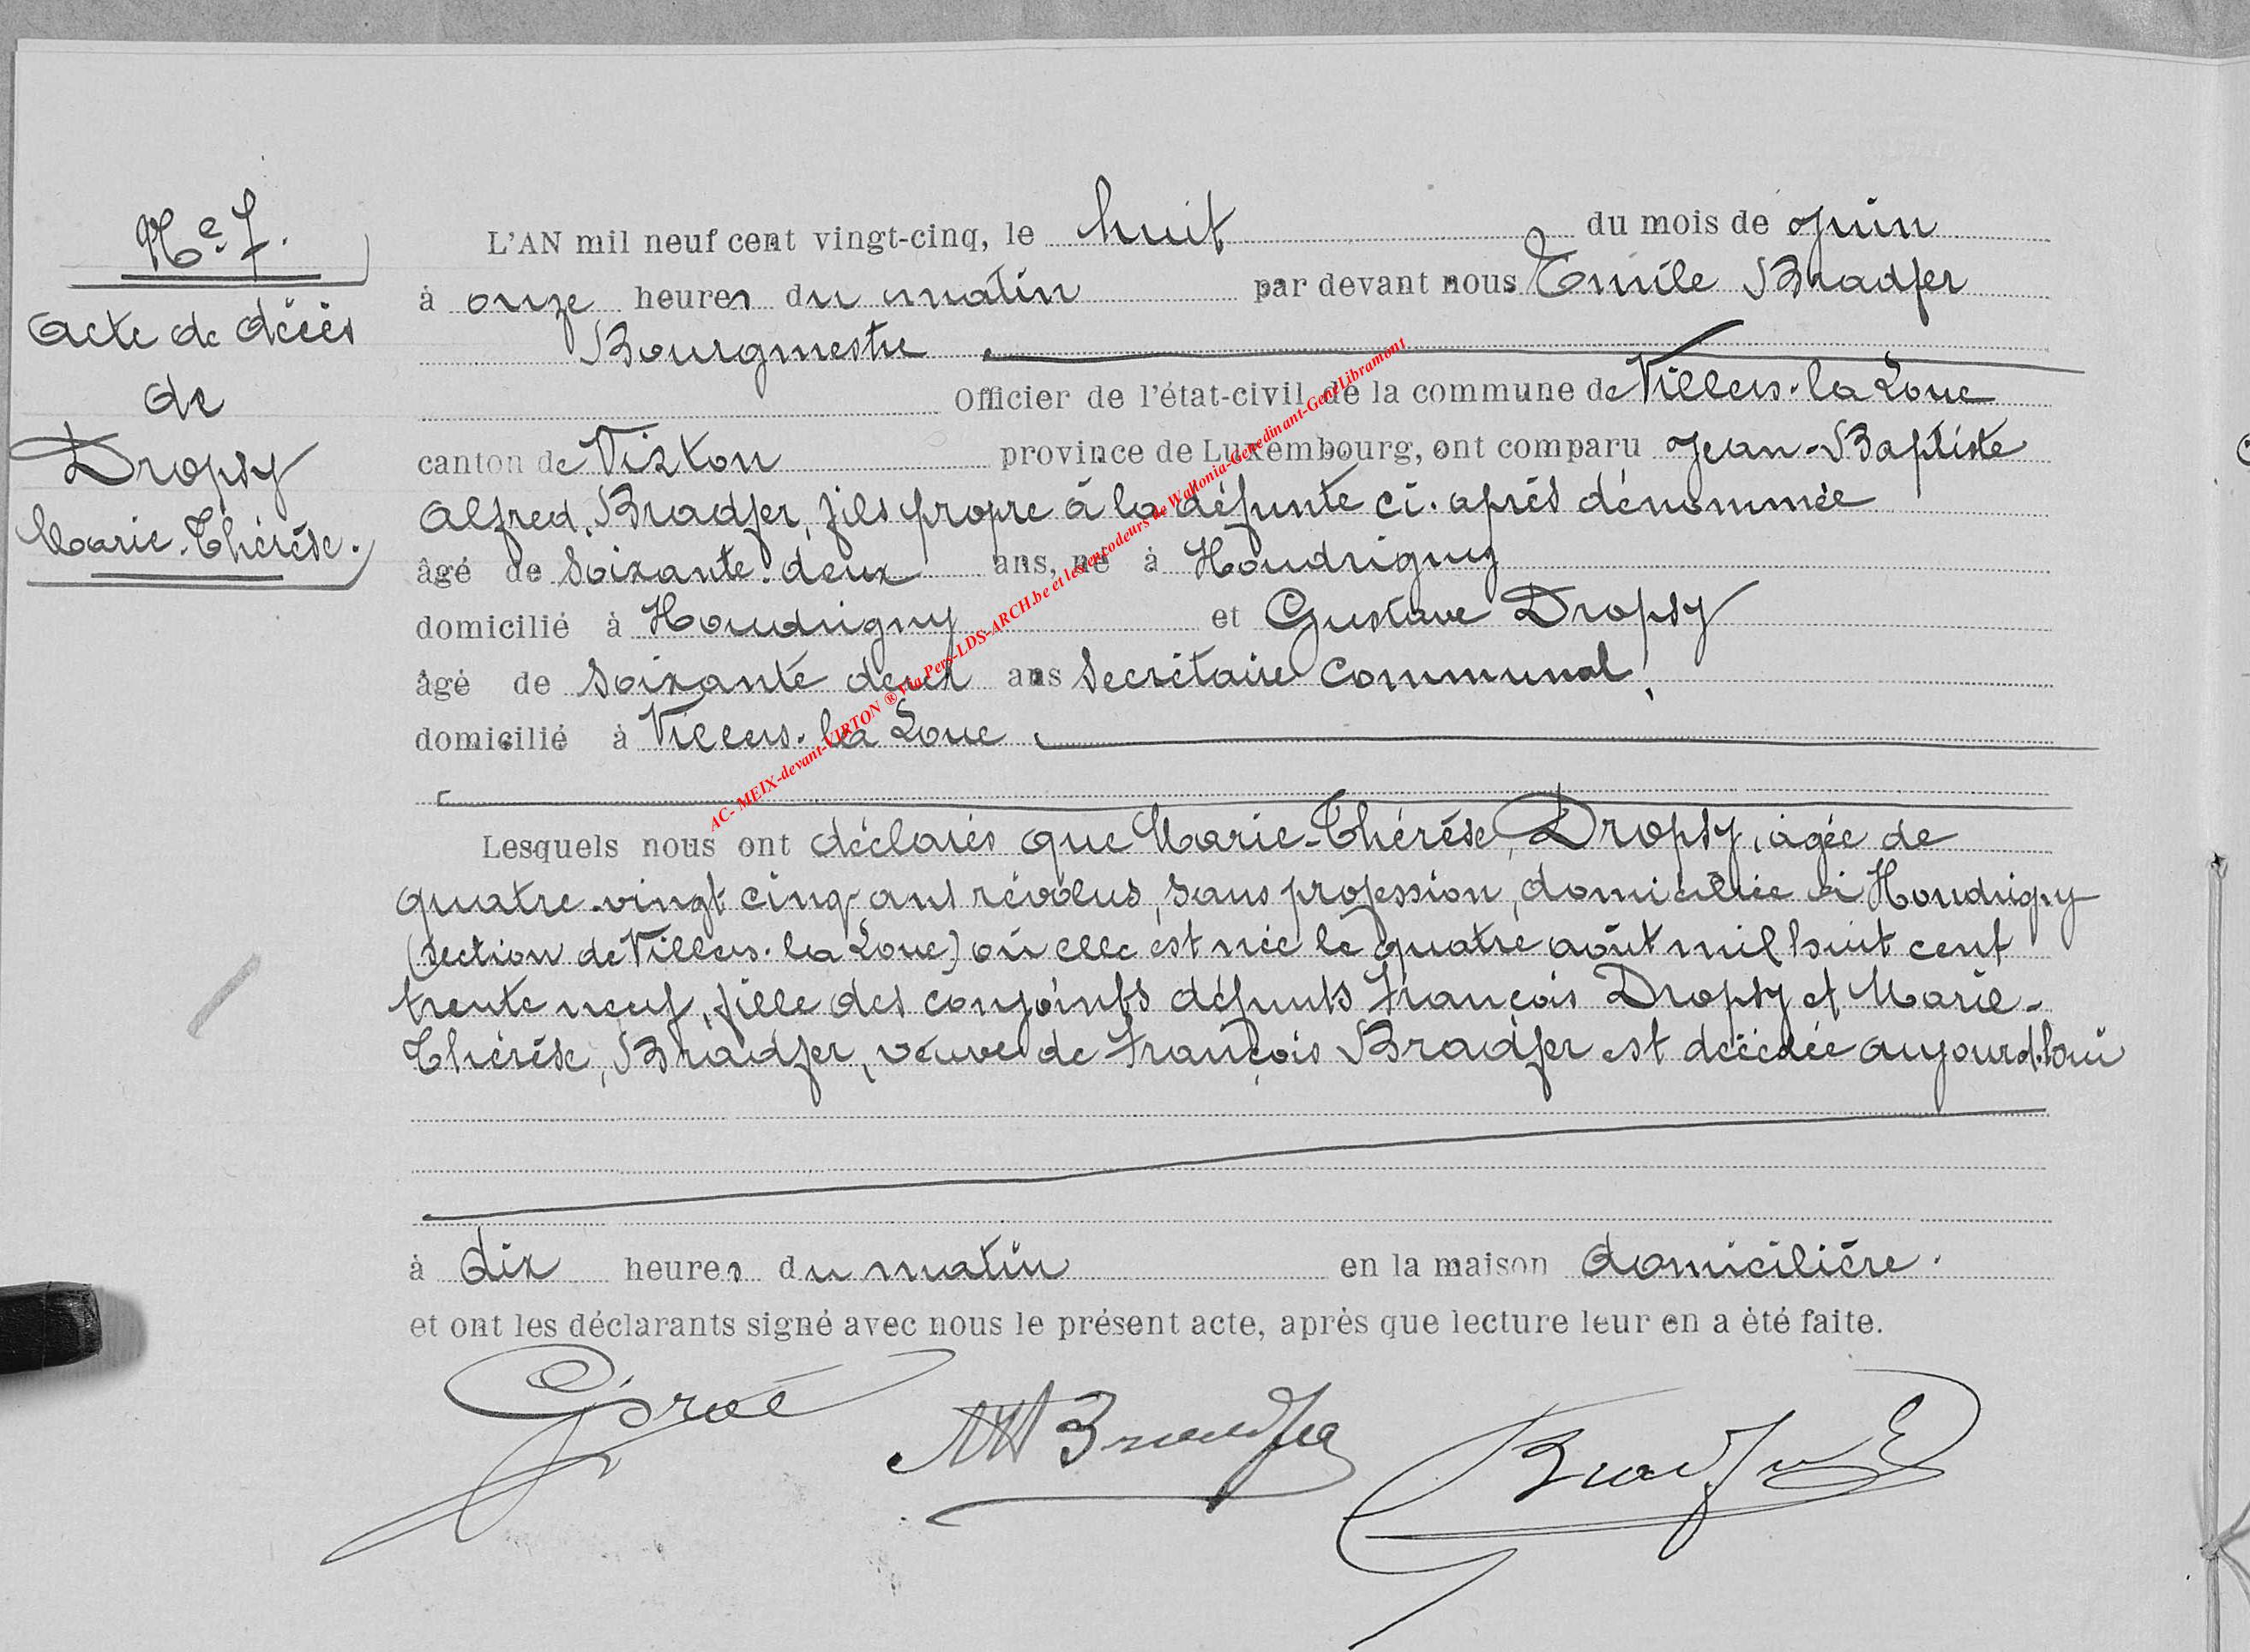 Nº 7.
Acte de décès
de
Dropsy
Marie-Thérèse.
L'AN mil neuf cent vingt-cinq, le huit du mois de Juin
à onze heures du matin par devant nous Emile Bradfer
Bourgmestre
Officier de l'état-civil de la commune de Villers-la Loue
canton de Virton province de Luxembourg, ont comparu Jean-Baptiste
Alfred, Bradfer, fils propre à la défunte ci-après dénommée
âgé de soixante-deux ans, né à Houdrigny
domicilié à Houdrigny et Gustave Dropsy
âgé de soixante deux ans Secrétaire Communal,
domicilié à Villers-la Loue
Lesquels nous ont déclarés que Marie-Thérèse, Dropsy, âgée de
quatre-vingt cinq ans révolus, sans profession, domiciliée à Houdrigny
(section de Villers-la Loue) où elle est née le quatre août mil huit cent
trente neuf, fille des conjoints défunts François Dropsy et Marie-
Thérèse, Bradfer, veuve de François Bradfer est décédée aujourd'hui
à dix heures du matin en la maison domicilière.
et ont les déclarants signé avec nous le présent acte, après que lecture leur en a été faite.
Bradfer Bradfer E
AC- MEIX-devant-VIRTON ® Via Pers-LDS-ARCH.be et les encodeurs de Wallonia-Genedinant-GeneLibramont